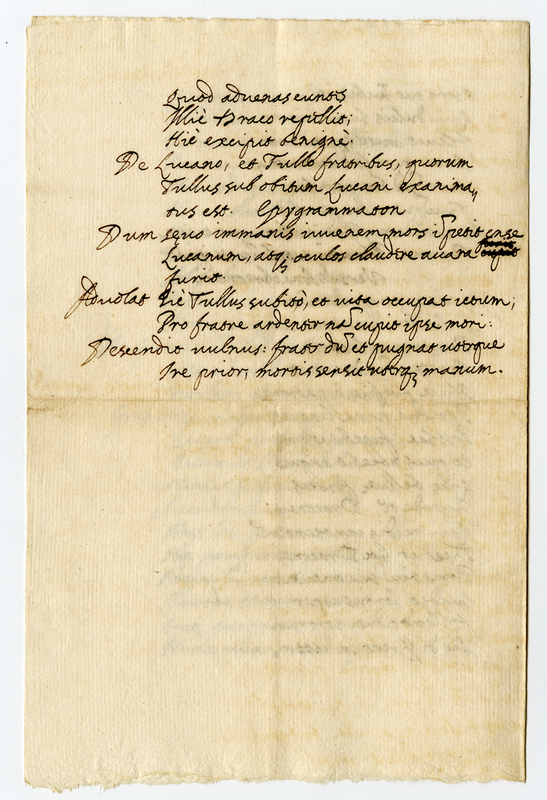 Quod advenas euntis
Illic Draco repullit;
Hic excipit benignè.
De Lucano, et Tullo fratribus, quorum
Tullus sub obitum Lucani exanima,,
tus est. Epygrammaton
Dum sævo immanis iuvenem mors īpetit ense
Lucanum, atq; oculos claudire avara
furit
Advolat hic Tullus subitò, et vita occupat ictum;
Pro fratre ardenter nā cupit ipse mori:
Descendit vulnus: frater dū et pugnat uterque
Ire prior; mortis sensit uterq; manum.